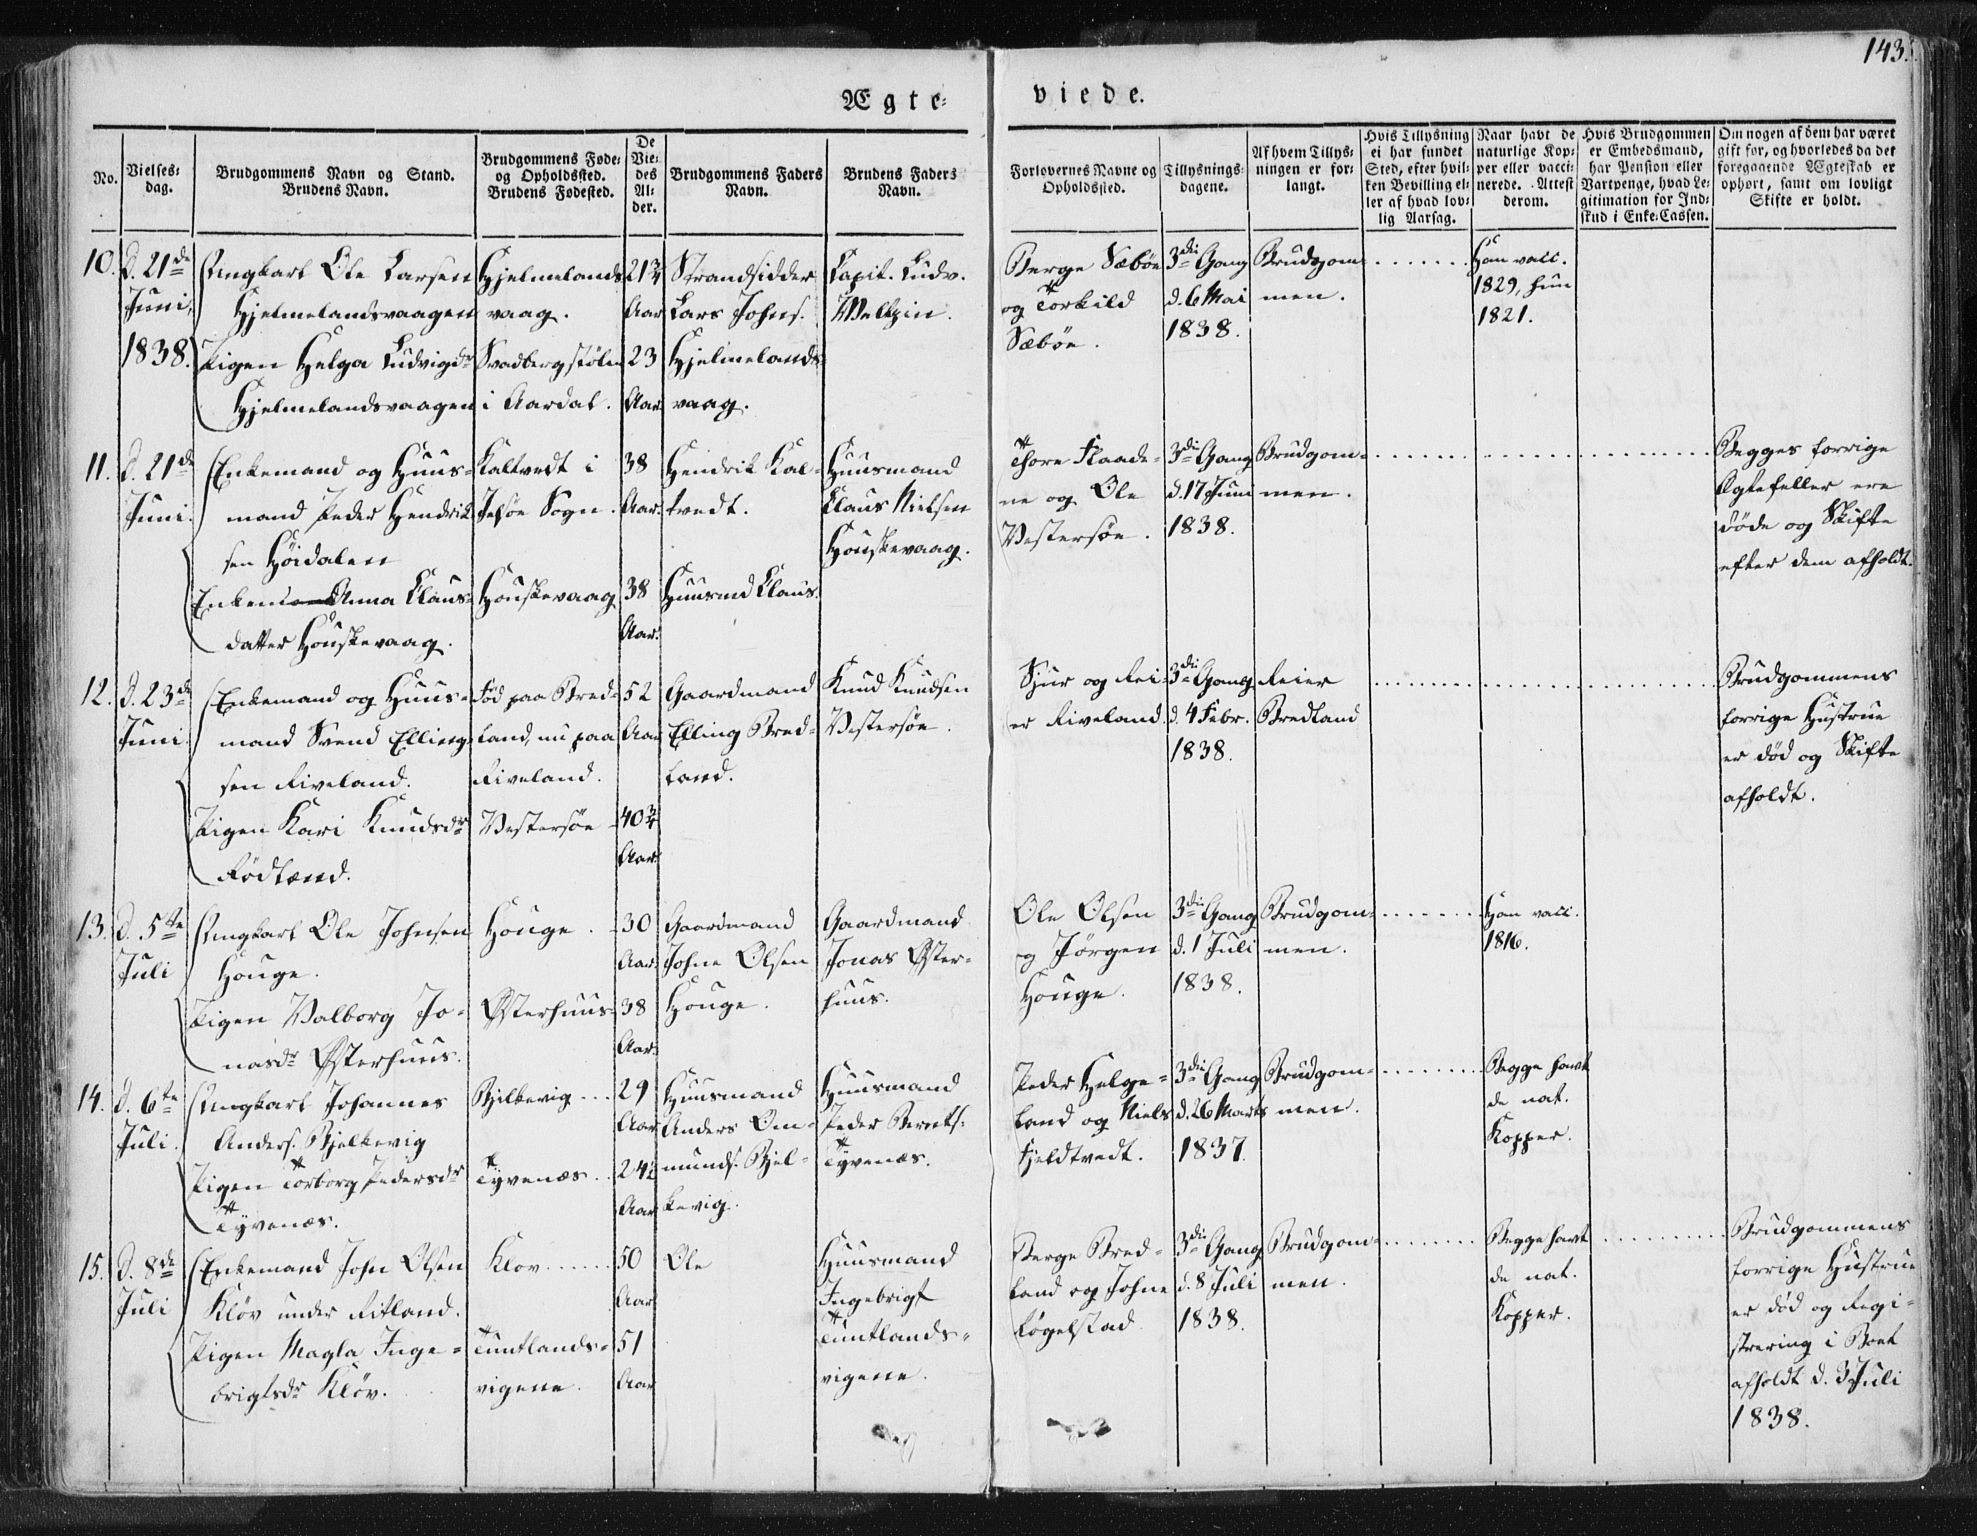 143.
Ægte-
viede.
No.
Vielses-
dag.
Brudgommens Navn og Stand.
Brudens Navn.
Brudgommens Føde-
og Opholdssted.
Brudens Fødested.
De
Vie-
des
Al-
der.
Brudgommens Faders
Navn.
Brudens Faders
Navn.
Forlovernes Navne og
Opholdssted.
Tillysnings-
dagene.
Af hvem Tillys-
ningen er for-
langt.
Hvis Tillysning
ei har fundet
Sted, efter hvil-
ken Bevilling el-
ler af hvad lov-
lig Aarsag.
Naar havt de
naturlige Kop-
per eller vacci-
nerede. Attest
derom.
Hvis Brudgommen
er Embedsmand,
har Pension eller
Vartpenge, hvad Le-
gitimation for Ind-
skud i Enke-Cassen.
Om nogen af dem har været
gift før, og hvorledes da det
foregaaende Ægteskab er
ophørt, samt om lovligt
Skifte er holdt.
10.
d. 21de
Juni,
1838.
Ungkarl Ole Larsen
Hjelmelandsvaagen
Pigen Helga Ludvigdr
Hjelmelandsvaagen
Hjelmelands
vaag.
Svadbergstølen
i Aardal.
21 3/4
Aar
23
Aar
Strandsidder
Lars Johns.
Hjelmelands-
vaag.
Capit. Ludv.
Weltzin.
Berge Sæbøe
og Torkild
Sæbøe.
3die Gang
d. 6 Mai
1838.
Brudgom-
men.
Han vacc.
1829, hun
1821.
11.
d. 21de
Juni.
Enkemand og Huus-
mand Peder Hendrik-
sen Høidalen
Enken Anna Claus-
datter Houskevaag.
Kaltvedt i
Jelsøe Sogn.
Houskevaag
38
Aar.
38
Aar.
Hendrik Kal-
tvedt.
Huusmd Claus.
Huusmand
Claus Nielsen
Houskevaag.
Thore Flaade-
ne og Ole
Vestersøe.
3die Gang
d. 17 Juni
1838.
Brudgom-
men.
Begges forrige
Ægtefeller ere
døde og Skifte
efter dem afholdt.
12.
d. 23de
Juni.
Enkemand og Huus-
mand Svend Elling-
sen Riveland.
Pigen Kari Knudsdr
Rødland.
Fød paa Bred-
land, nu paa
Riveland.
Vestersøe
52
Aar
40 3/4
Aar
Gaardmand
Elling Bred-
land.
Knud Knudsen
Vestersøe.
Sjur og Rei-
er Riveland.
3die Gang
d. 4 Febr.
1838.
Reier
Bredland
Brudgommens
forrige Hustrue
er død og Skifte
afholdt.
13.
d. 5te
Juli
Ungkarl Ole Johnsen
Houge.
Pigen Valborg Jo-
nasdr Østerhuus.
Houge.
Østerhuus
30
Aar.
38
Aar.
Gaardmand
Johne Olsen
Houge.
Gaardmand
Jonas Øster-
huus.
Ole Olsen
og Jørgen
Houge.
3die Gang
d. 1 Juli
1838.
Brudgom-
men.
Han vacc.
1816.
14.
d. 6te
Juli.
Ungkarl Johannes
Anders. Bjelkevig
Pigen Torborg Pedersdr
Tyvenæs.
Bjelkevig
Tyvenæs.
29
Aar
24 1/2
Aar
Huusmand
Anders Om-
munds. Bjel-
kevig.
Huusmand
Peder Bernts.
Tyvenæs.
Peder Helge-
land og Niels
Fjeldtvedt.
3die Gang
d. 26 Marts
1837.
Brudgom-
men.
Begge havt
de nat.
Kopper.
15.
d. 8de
Juli
Enkemand John Olsen
Kløv under Ritland.
Pigen Magla Inge-
brigtsdr Kløv.
Klov
Tuntlands-
vigene.
50
Aar
51
Aar
Ole
Huusmand
Ingebrigt
Tuntlands-
vigene.
Berge Bred-
land og Johne
Løgelstad
3die Gang
d. 8 Juli
1838.
Brudgom-
men.
Begge havt
de nat.
Kopper.
Brudgommens
forrige Hustrue
er død og Regi-
strering i Boet
afholdt d. 3 Juli
1838.